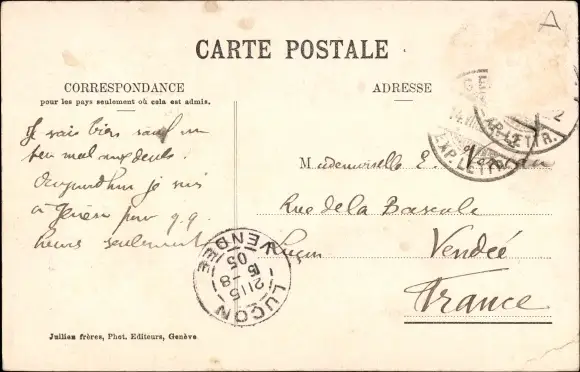 CARTE POSTALE
CORRESPONDANCE
pour les pays seulement où cela est admis.
ADRESSE
Je vais bien sauf un
peu mal aux dents.
Aujourdhui je suis
à Genève pour q.q.
heures seulement
Mademoiselle E.
Rue de la Bascule
Luçon Vendée
France
EXP. LETTR.
EXP. LETTR.
LUÇON
VENDÉE
Jullien frères, Phot. Editeurs, Genève